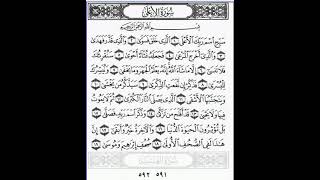 سُورَةُ الأَعْلَى
بِسْمِ اللَّهِ الرَّحْمَٰنِ الرَّحِيمِ
سَبِّحِ اسْمَ رَبِّكَ الْأَعْلَى ١ الَّذِي خَلَقَ فَسَوَّىٰ ٢ وَالَّذِي قَدَّرَ فَهَدَىٰ
٣ وَالَّذِي أَخْرَجَ الْمَرْعَىٰ ٤ فَجَعَلَهُ غُثَاءً أَحْوَىٰ ٥ سَنُقْرِئُكَ
فَلَا تَنسَىٰ ٦ إِلَّا مَا شَاءَ اللَّهُ إِنَّهُ يَعْلَمُ الْجَهْرَ وَمَا يَخْفَىٰ ٧ وَنُيَسِّرُكَ
لِلْيُسْرَىٰ ٨ فَذَكِّرْ إِن نَّفَعَتِ الذِّكْرَىٰ ٩ سَيَذَّكَّرُ مَن يَخْشَىٰ ١٠
وَيَتَجَنَّبُهَا الْأَشْقَى ١١ الَّذِي يَصْلَى النَّارَ الْكُبْرَىٰ ١٢ ثُمَّ لَا يَمُوتُ
فِيهَا وَلَا يَحْيَىٰ ١٣ قَدْ أَفْلَحَ مَن تَزَكَّىٰ ١٤ وَذَكَرَ اسْمَ رَبِّهِ فَصَلَّىٰ ١٥
بَلْ تُؤْثِرُونَ الْحَيَاةَ الدُّنْيَا ١٦ وَالْآخِرَةُ خَيْرٌ وَأَبْقَىٰ ١٧
إِنَّ هَٰذَا لَفِي الصُّحُفِ الْأُولَىٰ ١٨ صُحُفِ إِبْرَاهِيمَ وَمُوسَىٰ ١٩
٥٩١ ٥٩٢